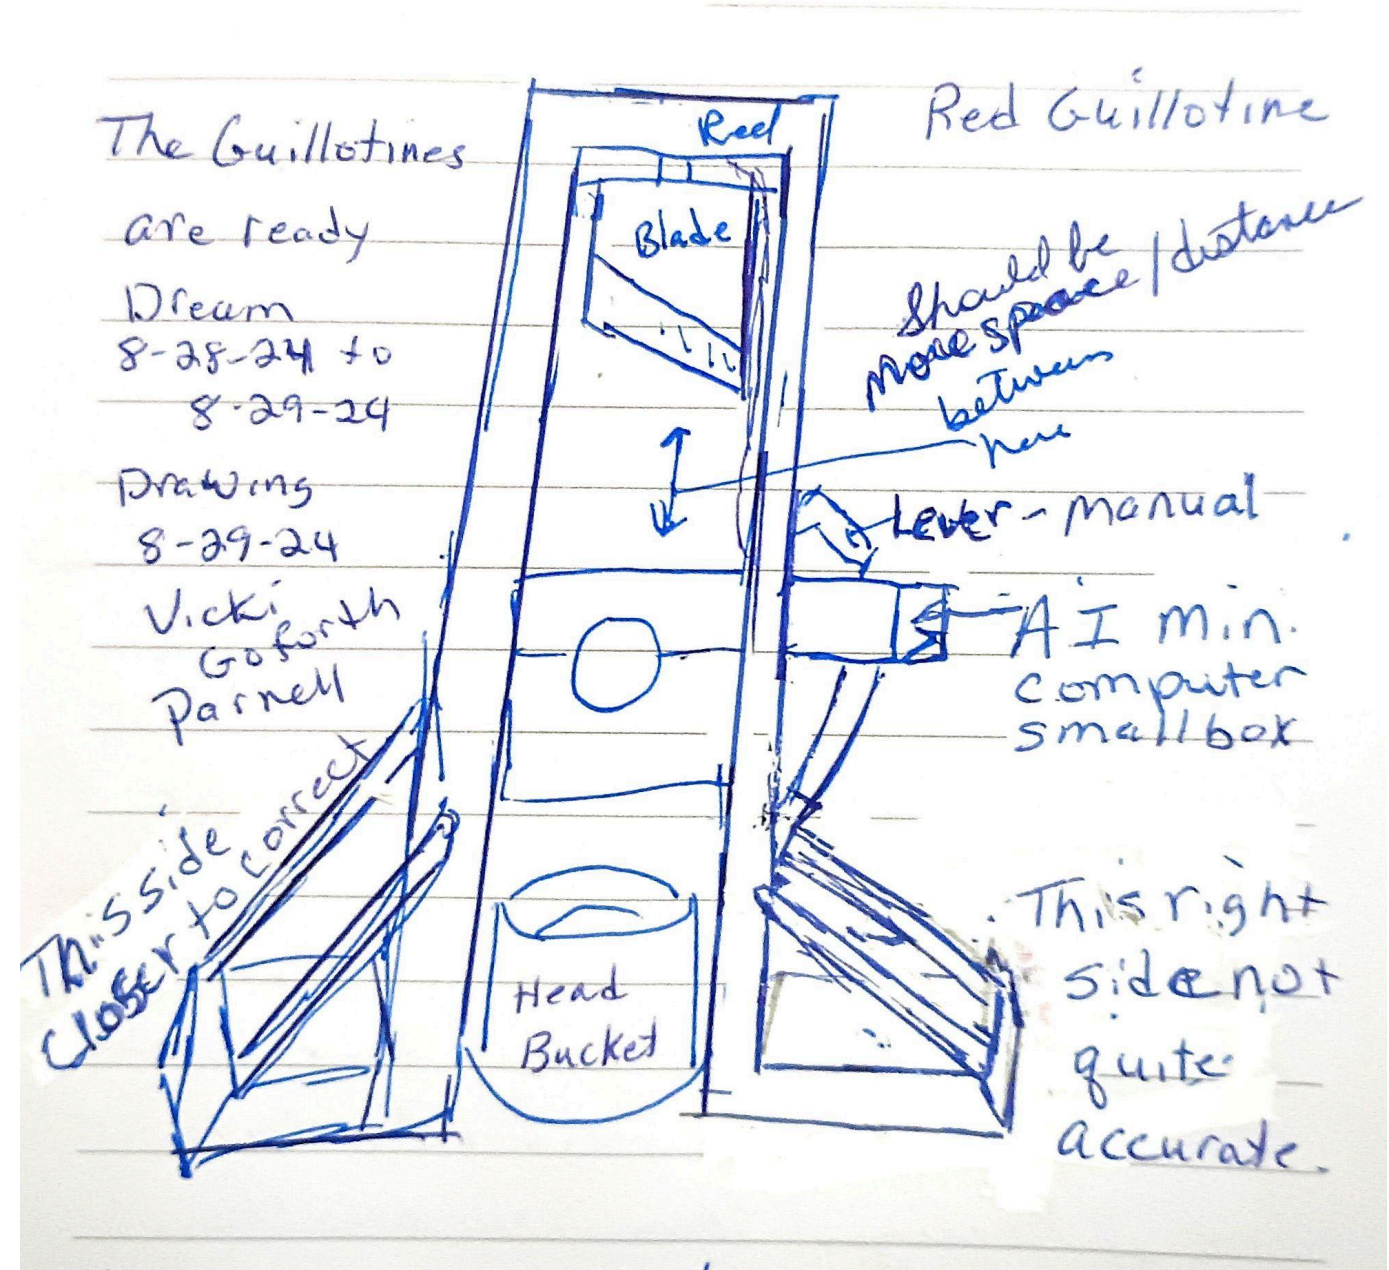 The Guillotines
are ready
Dream
8-28-24 to
8-29-24
Drawing
8-29-24
Vicki
Goforth
Parnell
This side
closer to correct
Red
Blade
Head
Bucket
Red Guillotine
Should be
more space / distance
between
here
Lever - manual
AI min.
computer
small box
This right
side not
quite
accurate.